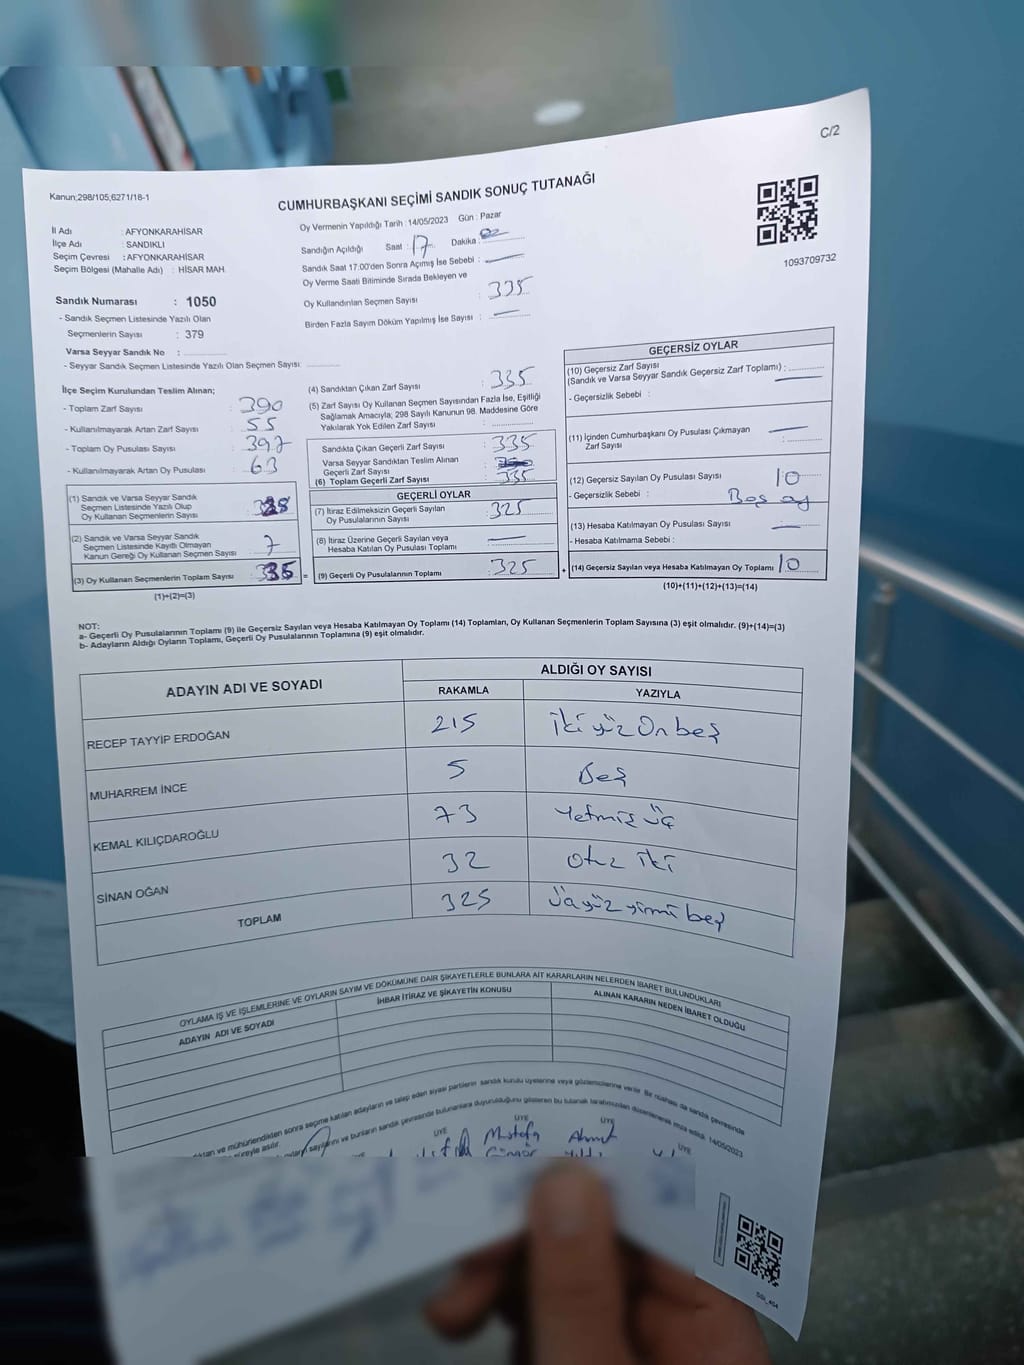 C/2
Kanun;298/105;6271/18-1
CUMHURBAŞKANI SEÇİMİ SANDIK SONUÇ TUTANAĞI
1093709732
İl Adı : AFYONKARAHİSAR
İlçe Adı : SANDIKLI
Seçim Çevresi : AFYONKARAHİSAR
Seçim Bölgesi (Mahalle Adı) : HİSAR MAH.
Sandık Numarası : 1050
- Sandık Seçmen Listesinde Yazılı Olan
Seçmenlerin Sayısı : 379
Varsa Seyyar Sandık No :
- Seyyar Sandık Seçmen Listesinde Yazılı Olan Seçmen Sayısı:
Oy Vermenin Yapıldığı Tarih :14/05/2023 Gün : Pazar
Sandığın Açıldığı Saat : 17 Dakika : 02
Sandık Saat 17:00'den Sonra Açımış İse Sebebi :
Oy Verme Saati Bitiminde Sırada Bekleyen ve
Oy Kullandırılan Seçmen Sayısı : 335
Birden Fazla Sayım Döküm Yapılmış İse Sayısı :
İlçe Seçim Kurulundan Teslim Alınan;
- Toplam Zarf Sayısı : 390
- Kullanılmayarak Artan Zarf Sayısı : 55
- Toplam Oy Pusulası Sayısı : 397
- Kullanılmayarak Artan Oy Pusulası : 63
(1) Sandık ve Varsa Seyyar Sandık
Seçmen Listesinde Yazılı Olup
Oy Kullanan Seçmenlerin Sayısı : 328
(2) Sandık ve Varsa Seyyar Sandık
Seçmen Listesinde Kayıtlı Olmayan
Kanun Gereği Oy Kullanan Seçmen Sayısı : 7
(3) Oy Kullanan Seçmenlerin Toplam Sayısı : 335
(1)+(2)=(3)
(4) Sandıktan Çıkan Zarf Sayısı : 335
(5) Zarf Sayısı Oy Kullanan Seçmen Sayısından Fazla İse, Eşitliği
Sağlamak Amacıyla; 298 Sayılı Kanunun 98. Maddesine Göre
Yakılarak Yok Edilen Zarf Sayısı :
Sandıkta Çıkan Geçerli Zarf Sayısı : 335
Varsa Seyyar Sandıktan Teslim Alınan
Geçerli Zarf Sayısı :
(6) Toplam Geçerli Zarf Sayısı : 335
GEÇERLİ OYLAR
(7) İtiraz Edilmeksizin Geçerli Sayılan
Oy Pusulalarının Sayısı : 325
(8) İtiraz Üzerine Geçerli Sayılan veya
Hesaba Katılan Oy Pusulası Toplamı :
= (9) Geçerli Oy Pusulalarının Toplamı : 325
GEÇERSİZ OYLAR
(10) Geçersiz Zarf Sayısı
(Sandık ve Varsa Seyyar Sandık Geçersiz Zarf Toplamı) :
- Geçersizlik Sebebi :
(11) İçinden Cumhurbaşkanı Oy Pusulası Çıkmayan
Zarf Sayısı :
(12) Geçersiz Sayılan Oy Pusulası Sayısı : 10
- Geçersizlik Sebebi : Boş oy
(13) Hesaba Katılmayan Oy Pusulası Sayısı :
- Hesaba Katılmama Sebebi :
+ (14) Geçersiz Sayılan veya Hesaba Katılmayan Oy Toplamı : 10
(10)+(11)+(12)+(13)=(14)
NOT:
a- Geçerli Oy Pusulalarının Toplamı (9) ile Geçersiz Sayılan veya Hesaba Katılmayan Oy Toplamı (14) Toplamları, Oy Kullanan Seçmenlerin Toplam Sayısına (3) eşit olmalıdır. (9)+(14)=(3)
b- Adayların Aldığı Oyların Toplamı, Geçerli Oy Pusulalarının Toplamına (9) eşit olmalıdır.
ADAYIN ADI VE SOYADI ALDIĞI OY SAYISI
RAKAMLA YAZIYLA
RECEP TAYYİP ERDOĞAN 215 İkiyüz Onbeş
MUHARREM İNCE 5 Beş
KEMAL KILIÇDAROĞLU 73 Yetmiş üç
SİNAN OĞAN 32 Otuz iki
TOPLAM 325 Üçyüz yirmi beş
OYLAMA İŞ VE İŞLEMLERİNE VE OYLARIN SAYIM VE DÖKÜMÜNE DAİR ŞİKAYETLERLE BUNLARA AİT KARARLARIN NELERDEN İBARET BULUNDUKLARI
ADAYIN ADI VE SOYADI İHBAR İTİRAZ VE ŞİKAYETİN KONUSU ALINAN KARARIN NEDEN İBARET OLDUĞU
ve mühürlendikten sonra seçime katılan adayların ve talep eden siyasi partilerin sandık kurulu üyelerine veya gözlemcilerine verilir. Bir nüshası da sandık çevresinde
sayılarını ve bunların sandık çevresinde bulunanlara duyurulduğunu gösteren bu tutanak tarafımızdan düzenlenerek imza edildi. 14/05/2023
ÜYE ÜYE ÜYE ÜYE
Mustafa Ahmet
Güngör